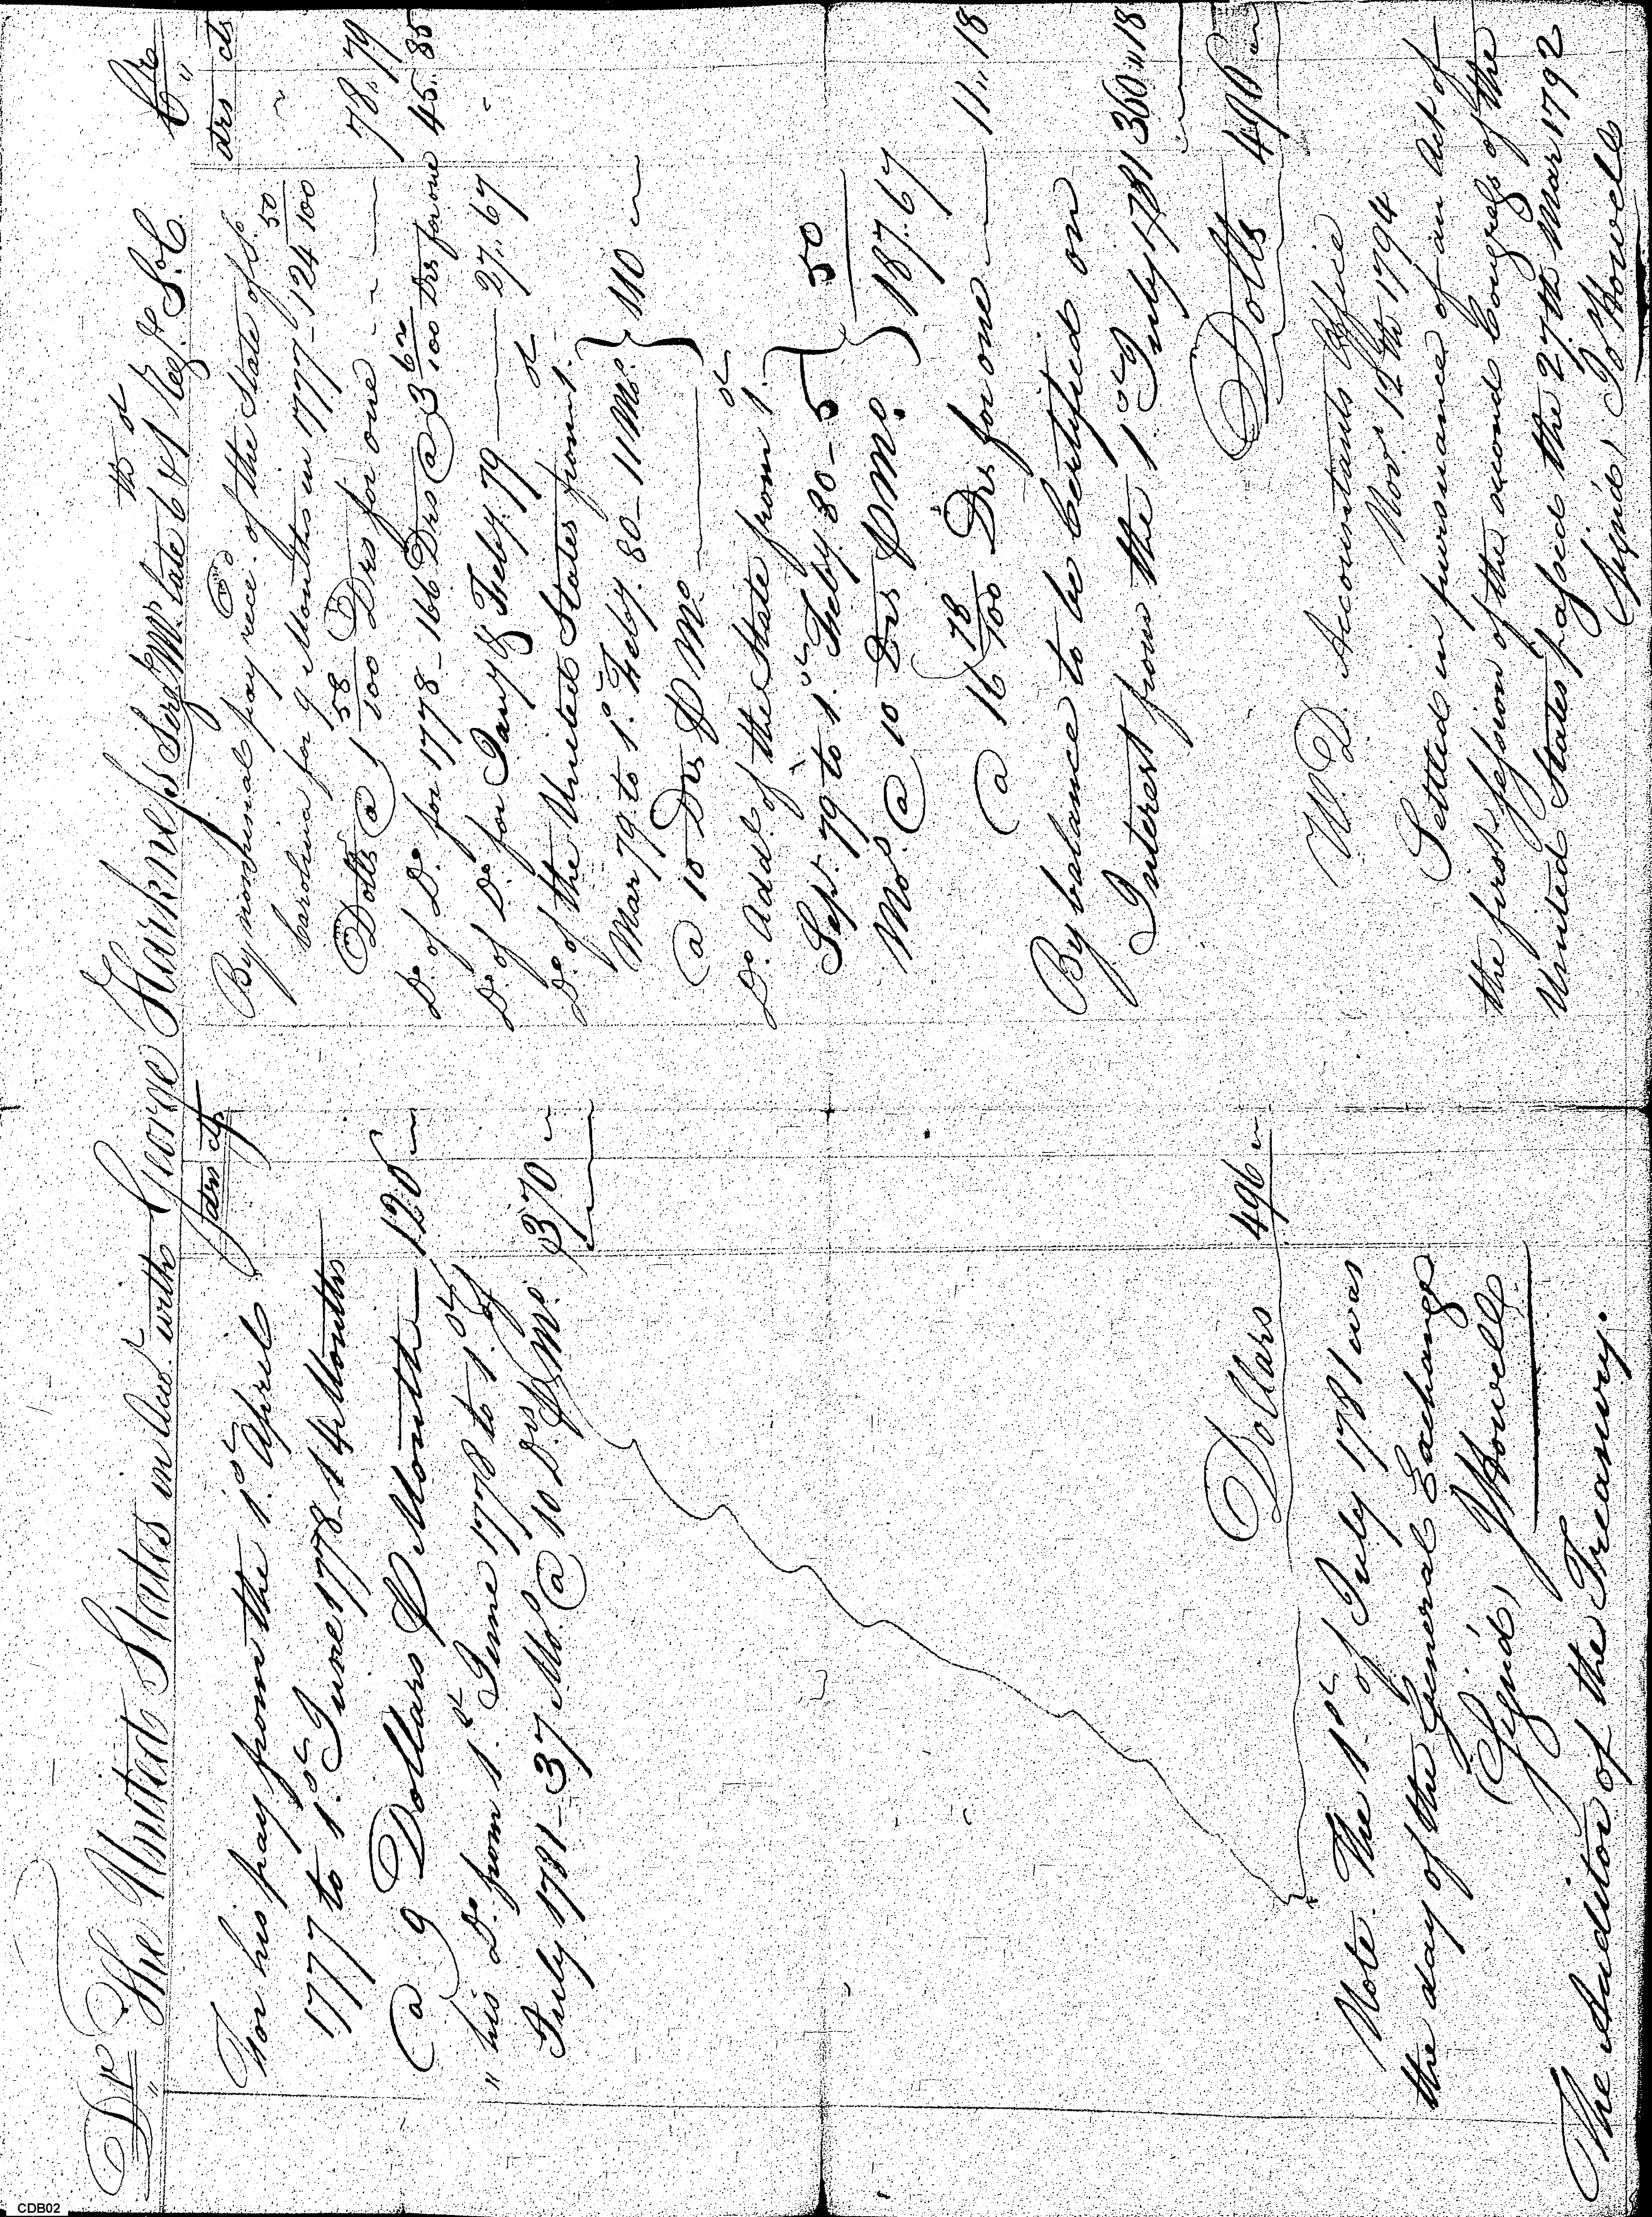 Dr The United States in Acct. with George Harkness Serjt. Mr. late 6th & 1st Reg.t S.C. Cr
drs cts
For his pay from the 1st. April
1777 to 1st. June 1778 - 14 Months
@ 9 Dollars P Month - 126
" his Do. from 1st. June 1778 to 1st. of
July 1781 - 37 Mos. @ 10 Drs P Mo. 370
Dollars 496
Note. The 1st. of July 1781 was
the day of the General Exchange
(Sign'd) J Howell
The Auditor of the Treasury.
drs cts
By nominal pay rece.d of the State of So.
Carolina for 9 Months in 1777 - 124 50/100
Dolls @ 1 58/100 Drs for one - - - 78,,79
Do. of Do. for 1778 - 166 Drs @ 3 62/100 Drs for one 45.85
Do. of Do. for Jany & Feby. 79 - 27,,67
Do. of the United States from 1st.
Mar 79 to 1st. Feby. 80 - 11 Mo. } 110
@ 10 Drs P Mo.
Do. Add.l of the State from 1st.
Sept. 79 to 1st. Feby. 80 - 5 } 50
Mos. @ 10 Drs P Mo. 187.67
@ 16 78/100 Drs for one - 11,,18
By balance to be Certified on
Interest from the 1st July 1781 360,,18
Dolls 496
W.D. Accountants Office
Nov.r 12th 1794
Settled in pursuance of an Act of
the first session of the second Congress of the
United States passed the 27th Mar 1792
(Sign'd) Jo Howell
CDB02